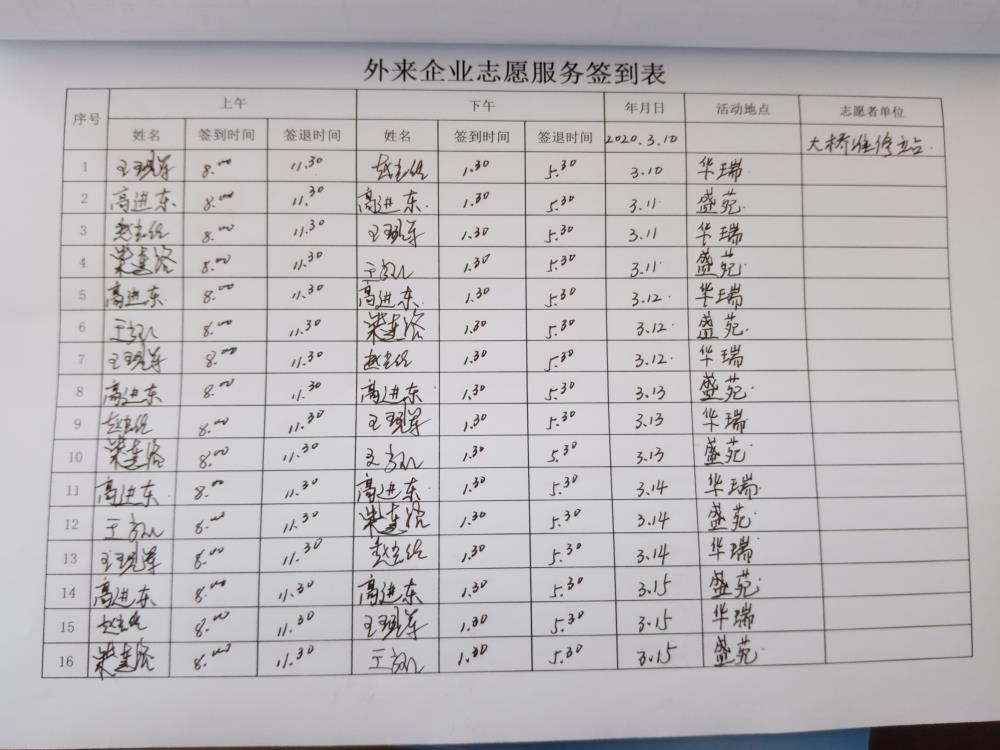 外来企业志愿服务签到表
序号 上午 下午 年月日 活动地点 志愿者单位
姓名 签到时间 签退时间 姓名 签到时间 签退时间 2020.3.10 大桥维修站
1 8.00 11.30 1.30 5.30 3.10 华瑞
2 高进东 8.00 11.30 高进东 1.30 5.30 3.11 盛苑
3 8.00 11.30 1.30 5.30 3.11 华瑞
4 8.00 11.30 1.30 5.30 3.11 盛苑
5 高进东 8.00 11.30 高进东 1.30 5.30 3.12 华瑞
6 8.00 11.30 1.30 5.30 3.12 盛苑
7 8.00 11.30 1.30 5.30 3.12 华瑞
8 高进东 8.00 11.30 高进东 1.30 5.30 3.13 盛苑
9 8.00 11.30 1.30 5.30 3.13 华瑞
10 8.00 11.30 1.30 5.30 3.13 盛苑
11 高进东 8.00 11.30 高进东 1.30 5.30 3.14 华瑞
12 8.00 11.30 1.30 5.30 3.14 盛苑
13 8.00 11.30 1.30 5.30 3.14 华瑞
14 高进东 8.00 11.30 高进东 1.30 5.30 3.15 盛苑
15 8.00 11.30 1.30 5.30 3.15 华瑞
16 8.00 11.30 1.30 5.30 3.15 盛苑